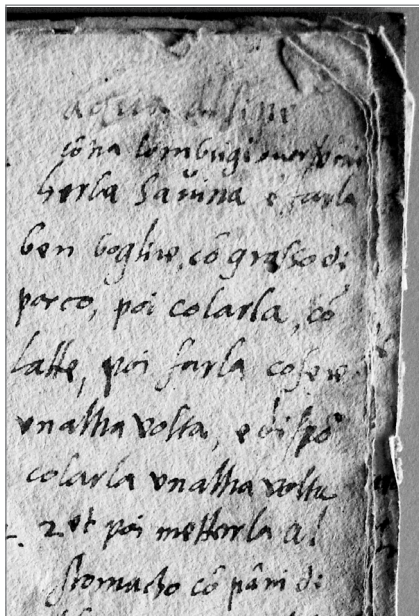 cõtra lombrigi
herba Sauina è farla
ben boglire, cõ grasso di
porco, poi colarla, cõ
latte, poi farla cosere
vnaltra volta, e dispò
colarla vnaltra volta
2 et poi metterla al
stomacho cõ pãni di